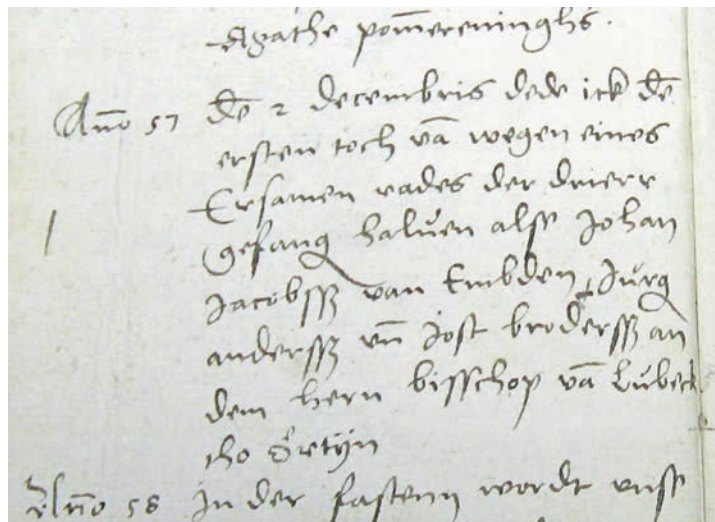 Agathe pom̄ereninghs.
Año 57 dē 2 decembris dede ick dē
ersten toch vā wegen eines
Ersamen rades der drierr
gefang halůen alse Johan
Jacobssß van Embden, Jůrg
anderssß vn̄ Jost broderssß an
dem hern bisschop vā Lůbeck
tho Ǒrtijn
Año 58 In der fastenn wordt unse